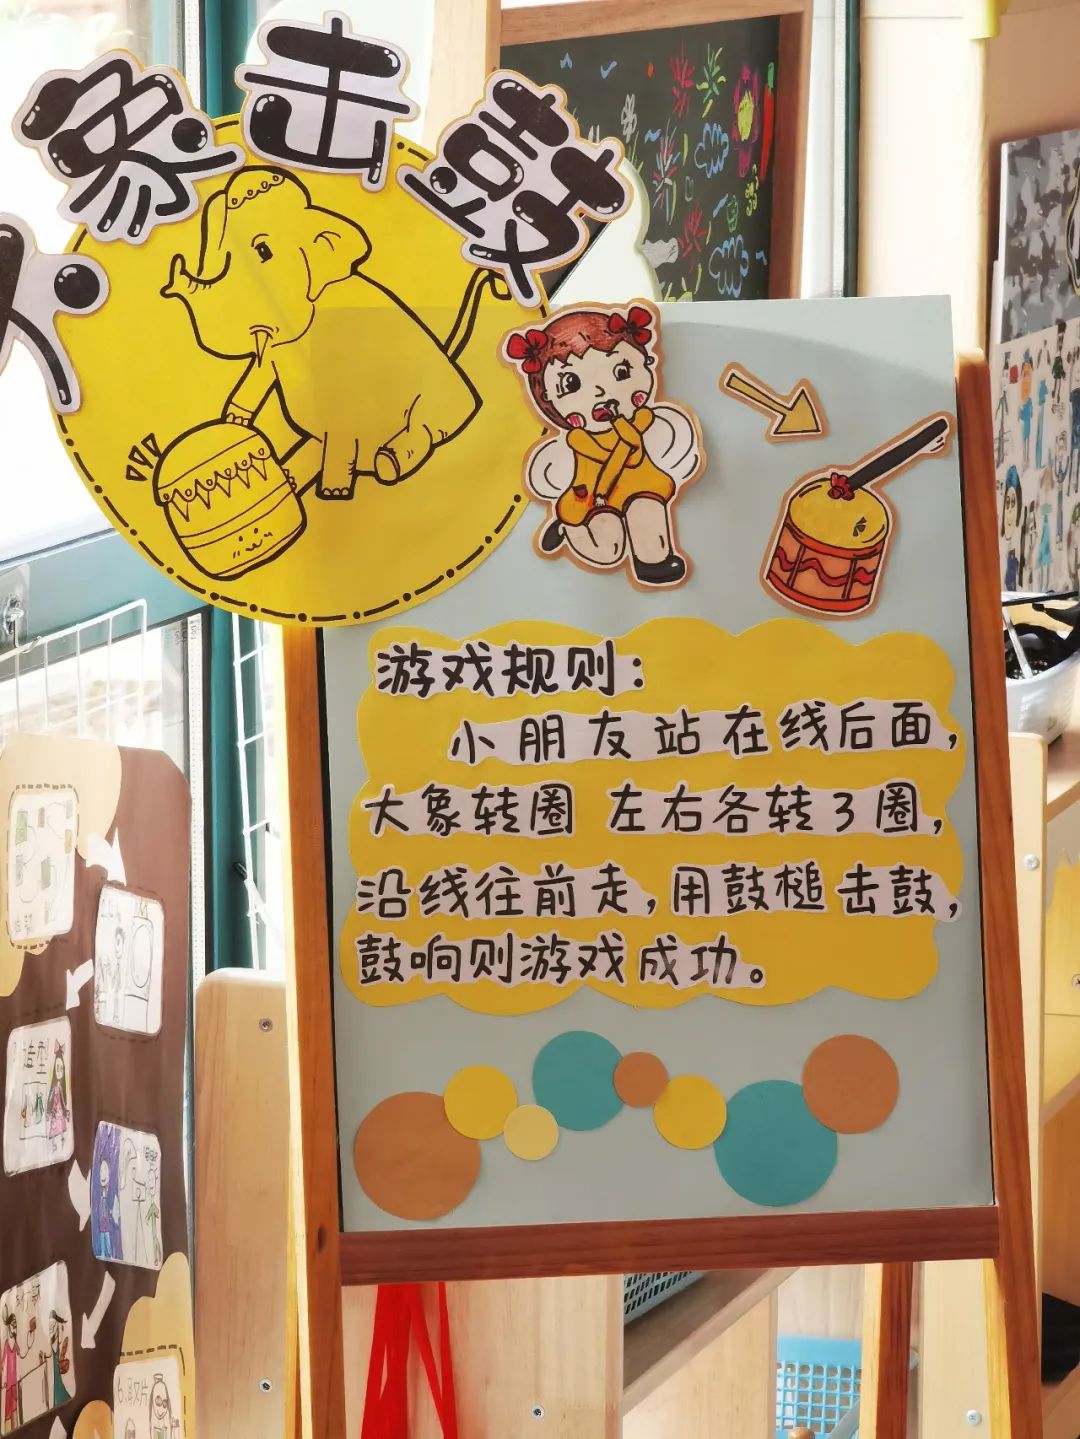 大象击鼓
游戏规则：
小朋友站在线后面，
大象转圈 左右各转3圈，
沿线往前走，用鼓槌击鼓，
鼓响则游戏成功。
造型